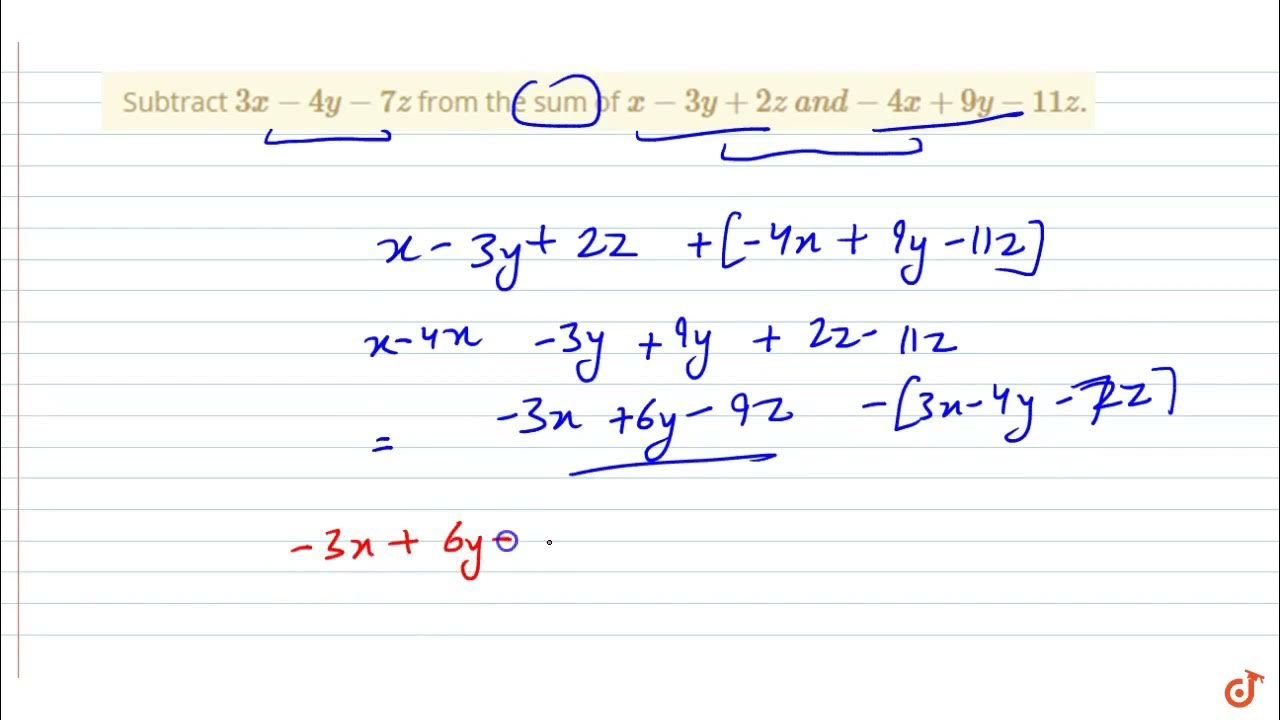 Subtract 3x − 4y − 7z from the sum of x − 3y + 2z and − 4x + 9y − 11z.
x - 3y + 2z + [-4x + 9y - 11z]
x - 4x - 3y + 9y + 2z - 11z
= -3x + 6y - 9z - [3x - 4y - 7z]
-3x + 6y -